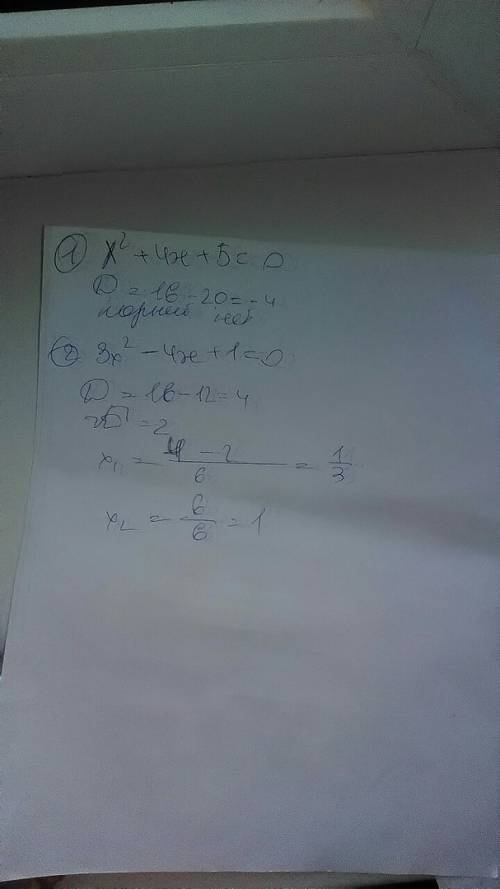 ① x² + 4x + 5 = 0
D = 16 - 20 = -4
корней нет
② 3x² - 4x + 1 = 0
D = 16 - 12 = 4
√D = 2
x₁ = (4 - 2)/6 = 1/3
x₂ = 6/6 = 1